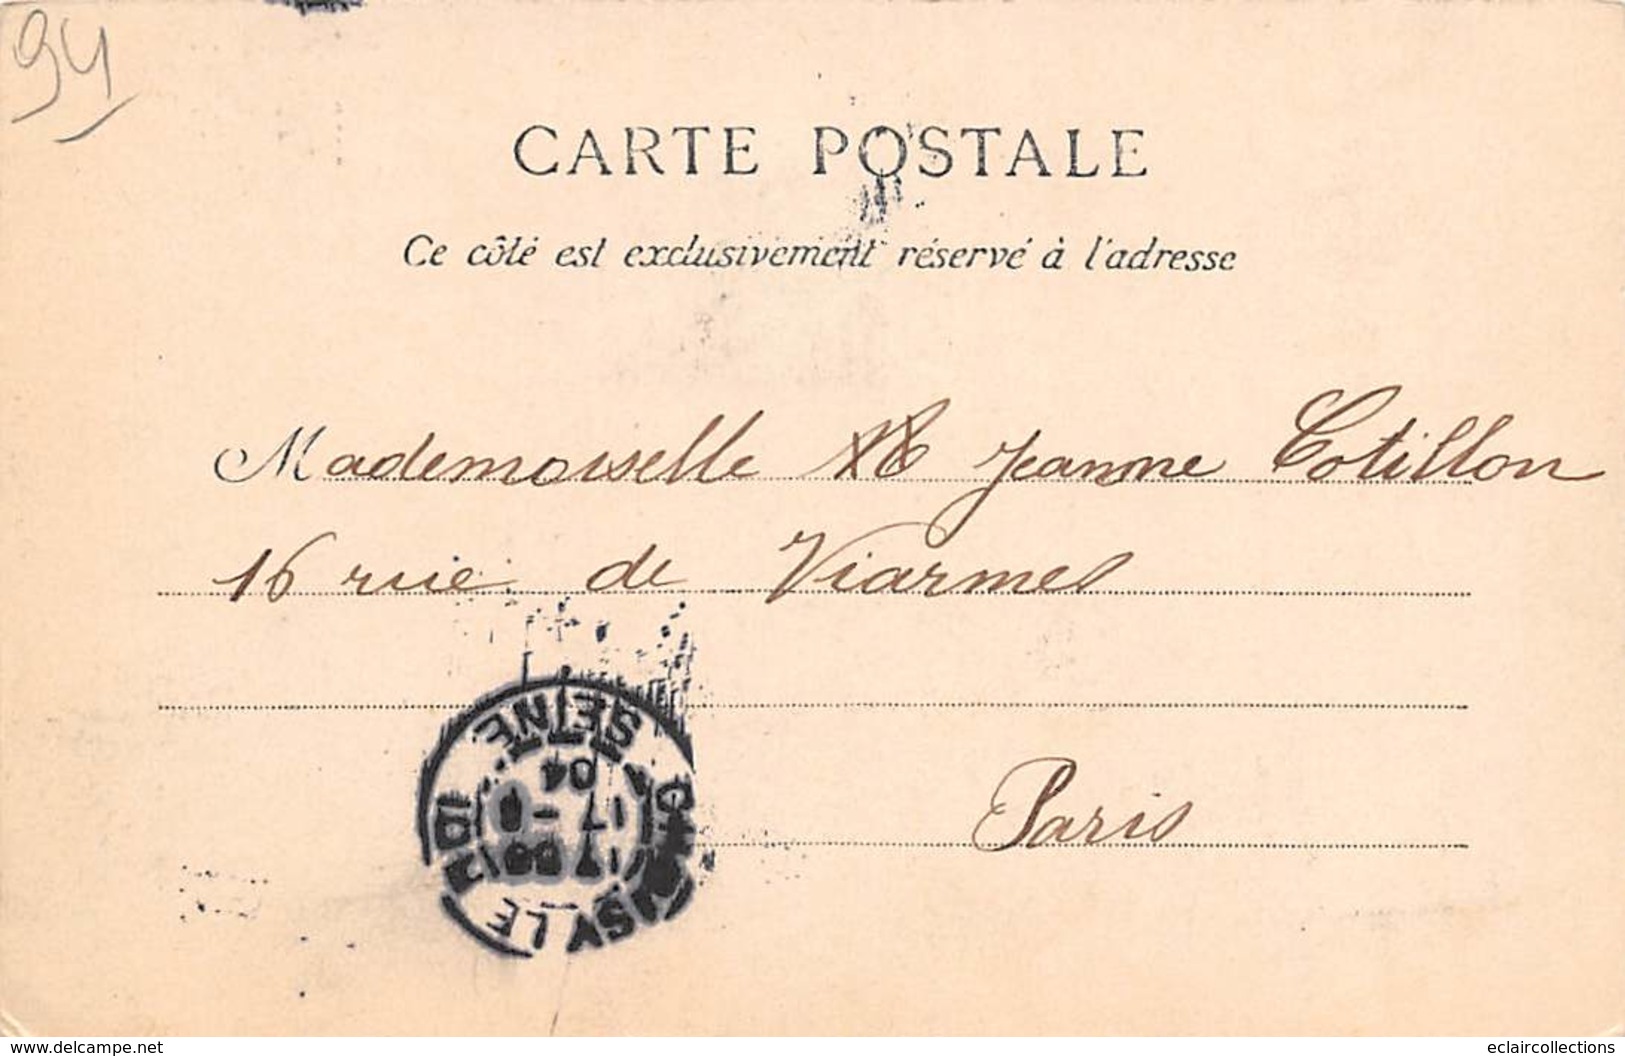 94
CARTE POSTALE
Ce côté est exclusivement réservé à l'adresse
Mademoiselle Jeanne Cotillon
16 rue de Viarmes
Paris
CHOISY LE ROI
17 - 8
04
SEINE
www.delcampe.net
eclaircollections